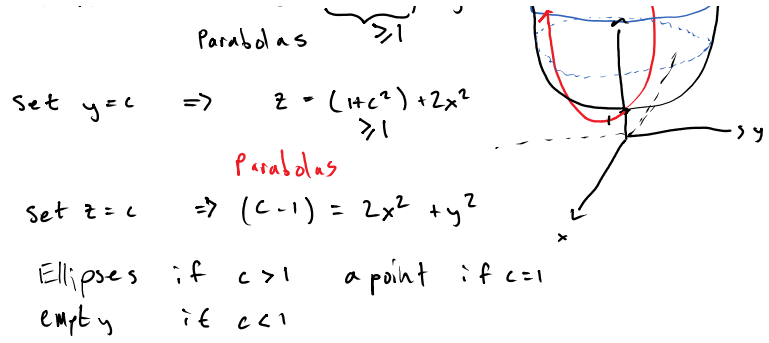 Parabolas ≥1
set y=c => z = (1+c²)+2x²
≥1
Parabolas
set z=c => (c-1) = 2x² + y²
Ellipses if c>1 a point if c=1
empty if c<1
1
y
x